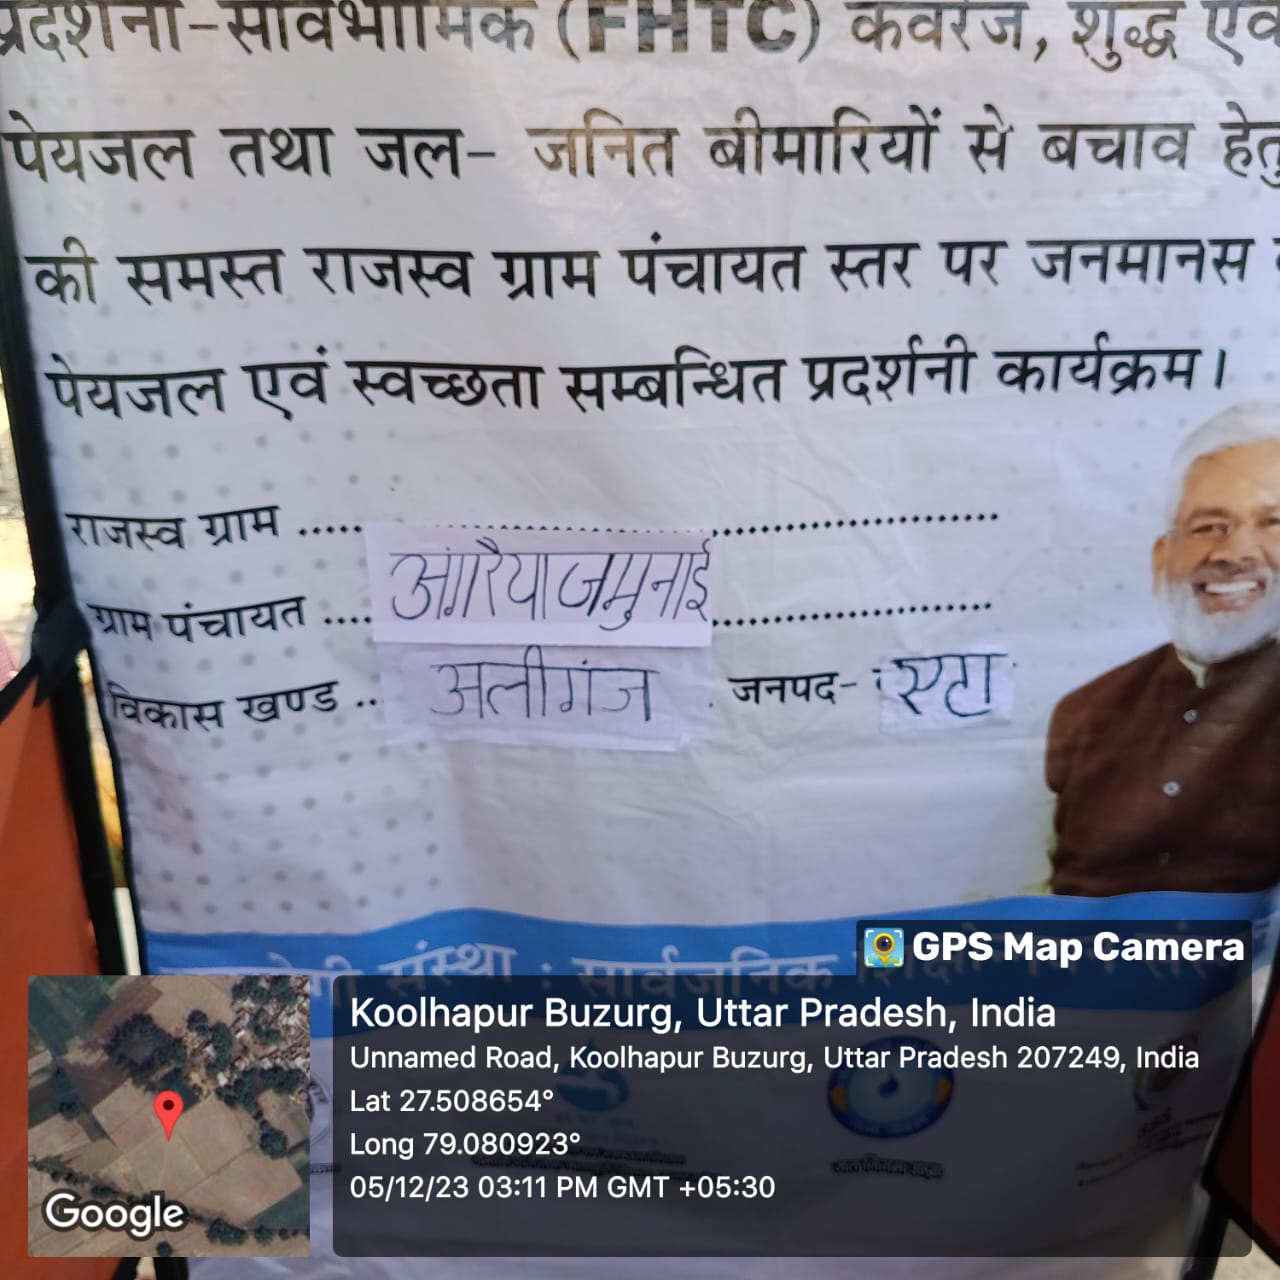 प्रदर्शनी-सार्वभौमिक (FHTC) कवरेज, शुद्ध एवं
पेयजल तथा जल- जनित बीमारियों से बचाव हेतु
की समस्त राजस्व ग्राम पंचायत स्तर पर जनमानस
पेयजल एवं स्वच्छता सम्बन्धित प्रदर्शनी कार्यक्रम।
राजस्व ग्राम ......
अंगरैया जमुनाई
ग्राम पंचायत ......
विकास खण्ड .. अलीगंज . जनपद- एटा
संस्था : सार्वजनिक
GPS Map Camera
Koolhapur Buzurg, Uttar Pradesh, India
Unnamed Road, Koolhapur Buzurg, Uttar Pradesh 207249, India
Lat 27.508654°
Long 79.080923°
05/12/23 03:11 PM GMT +05:30
Google